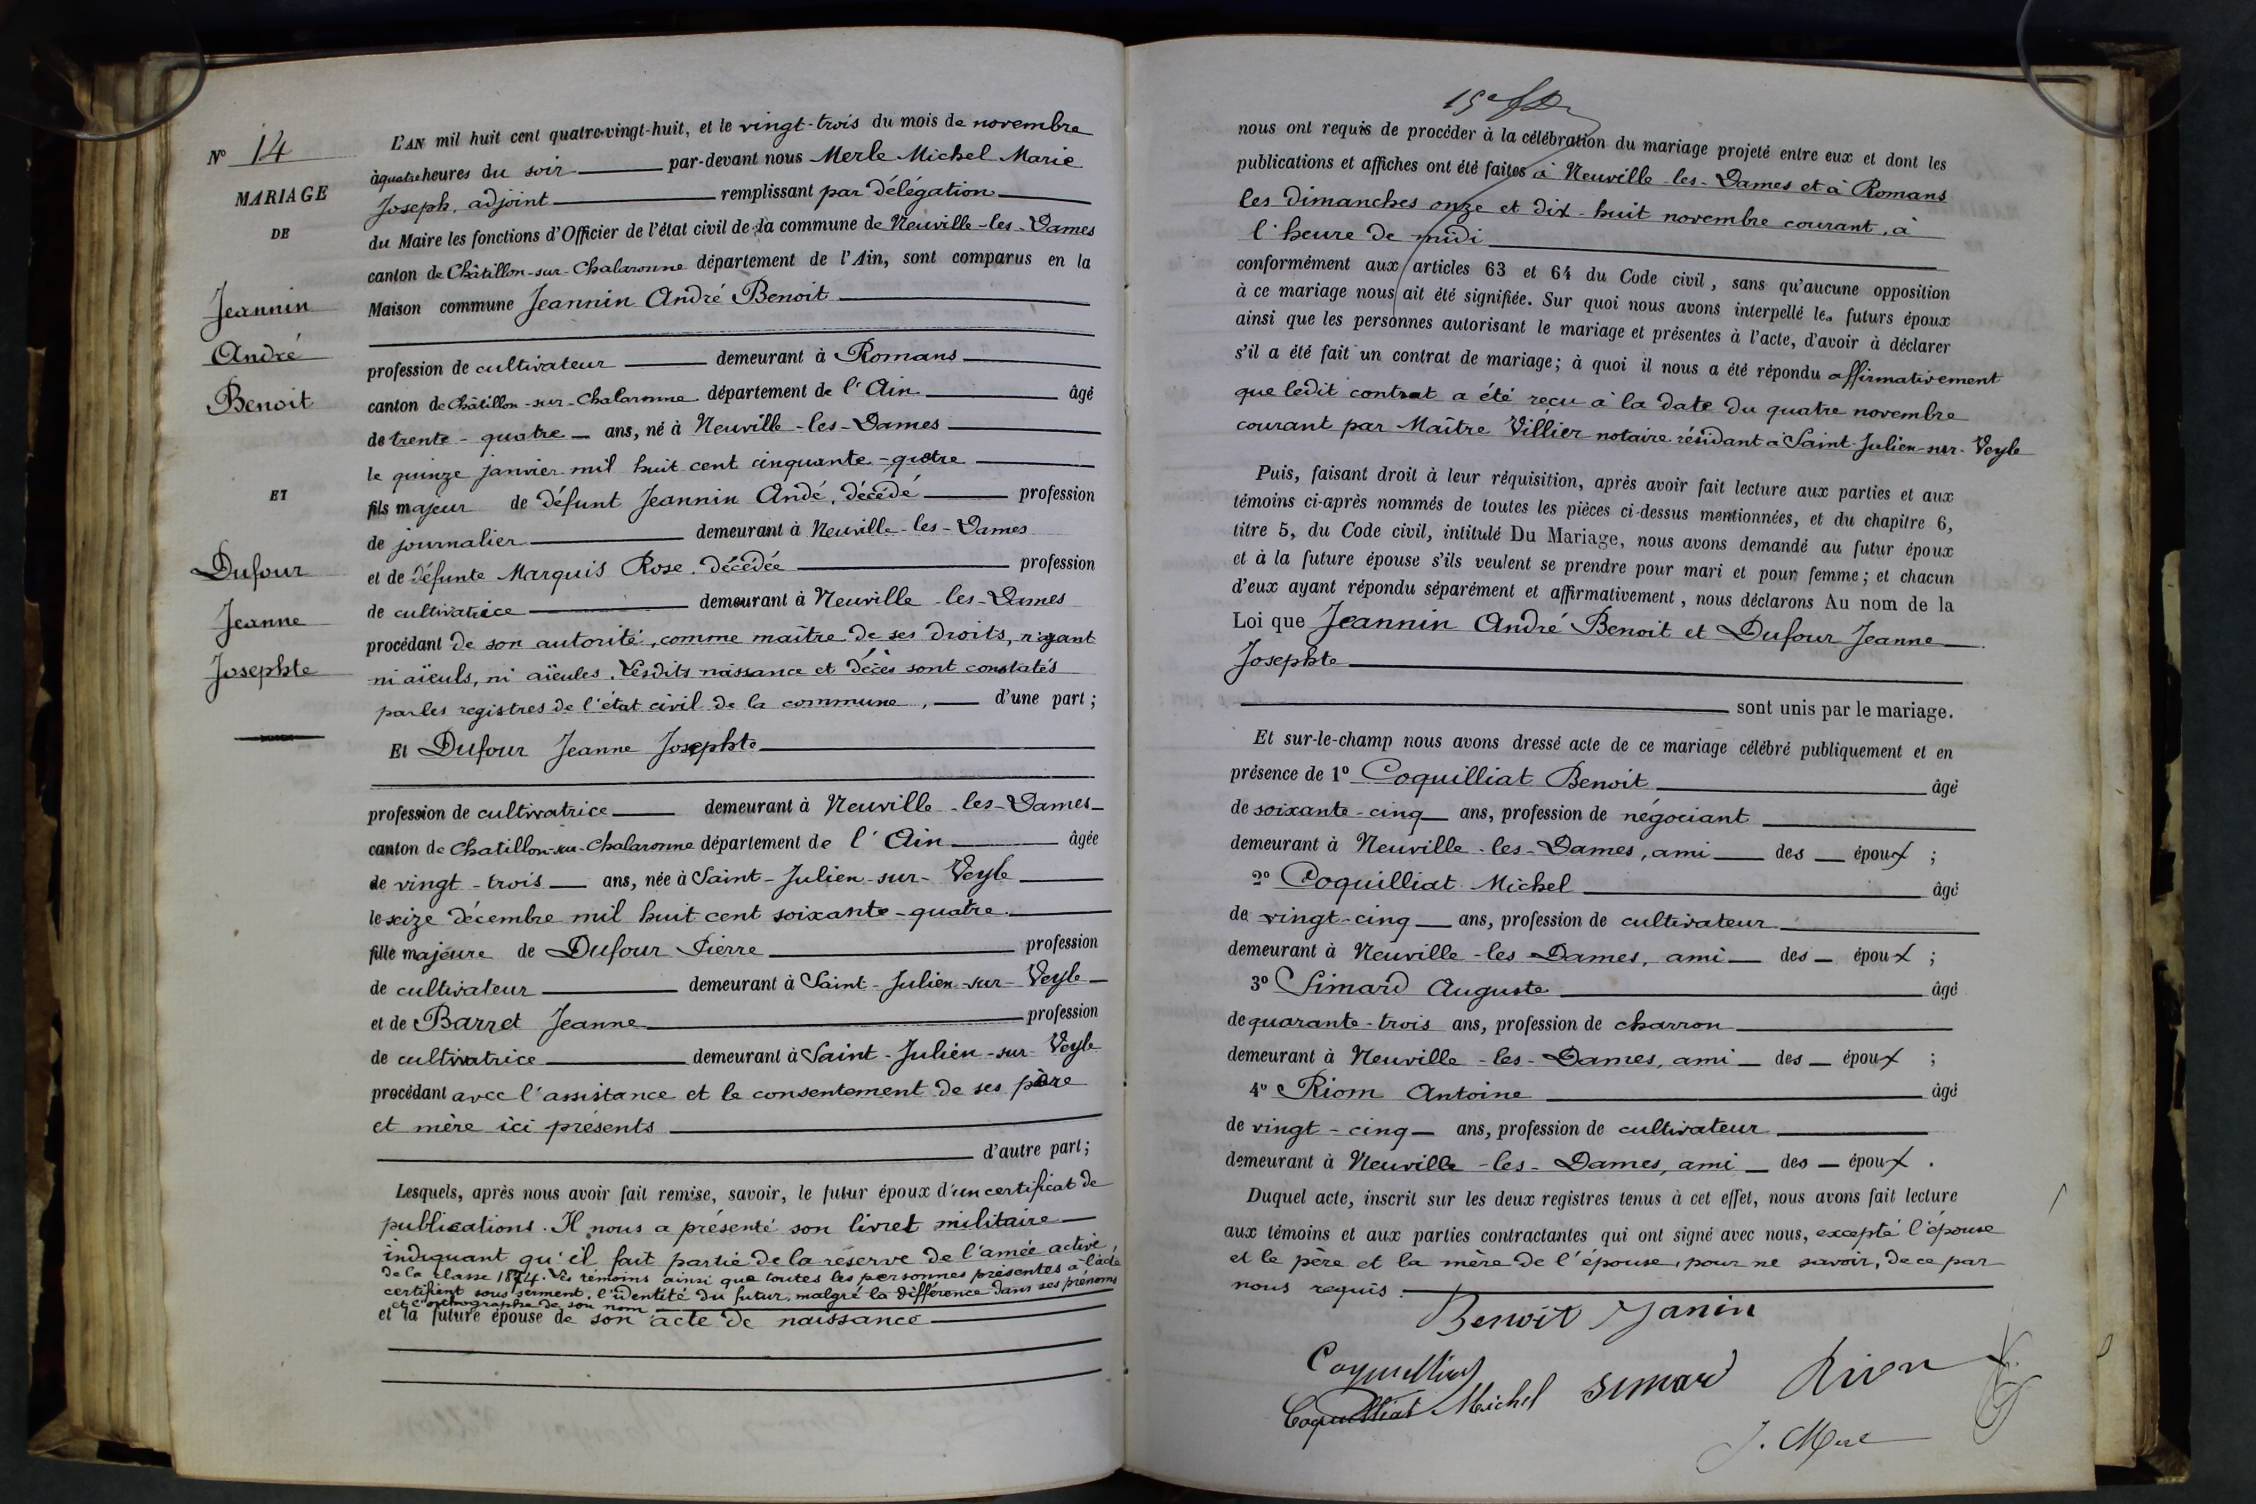 N° 14
MARIAGE
DE
Jeannin
André
Benoit
ET
Dufour
Jeanne
Josephte
L'AN mil huit cent quatre-vingt-huit, et le vingt-trois du mois de novembre
à quatre heures du soir par-devant nous Merle Michel Marie
Joseph, adjoint remplissant par délégation
du Maire les fonctions d'Officier de l'état civil de la commune de Neuville-les-Dames
canton de Châtillon-sur-Chalaronne département de l'Ain, sont comparus en la
Maison commune Jeannin André Benoit
profession de cultivateur demeurant à Romans
canton de Châtillon-sur-Chalaronne département de l'Ain âgé
de trente-quatre ans, né à Neuville-les-Dames
le quinze janvier mil huit cent cinquante-quatre
fils majeur de défunt Jeannin Andé, décédé profession
de journalier demeurant à Neuville-les-Dames
et de défunte Marquis Rose, décédée profession
de cultivatrice demeurant à Neuville-les-Dames
procédant de son autorité, comme maître de ses droits, n'ayant
ni aïeuls, ni aïeules. Lesdits naissance et décès sont constatés
par les registres de l'état civil de la commune, d'une part;
Et Dufour Jeanne Josephte
profession de cultivatrice demeurant à Neuville-les-Dames
canton de Chatillon-sur-Chalaronne département de l'Ain âgée
de vingt-trois ans, née à Saint-Julien-sur-Veyle
le seize décembre mil huit cent soixante-quatre.
fille majeure de Dufour Pierre profession
de cultivateur demeurant à Saint-Julien-sur-Veyle
et de Barret Jeanne profession
de cultivatrice demeurant à Saint-Julien-sur-Veyle
procédant avec l'assistance et le consentement de ses père
et mère ici présents
d'autre part;
Lesquels, après nous avoir fait remise, savoir, le futur époux d'un certificat de
publications. Il nous a présenté son livret militaire
indiquant qu'il fait partie de la réserve de l'amée active
de la classe 1874. Les témoins ainsi que toutes les personnes présentes à l'acte
certifient sous serment, l'identité du futur, malgré la différence dans ses prénoms
et l'orthographe de son nom
et la future épouse de son acte de naissance
nous ont requis de procéder à la célébration du mariage projeté entre eux et dont les
publications et affiches ont été faites à Neuville-les-Dames et à Romans
les dimanches onze et dix-huit novembre courant, à
l'heure de midi
conformément aux articles 63 et 64 du Code civil, sans qu'aucune opposition
à ce mariage nous ait été signifiée. Sur quoi nous avons interpellé les futurs époux
ainsi que les personnes autorisant le mariage et présentes à l'acte, d'avoir à déclarer
s'il a été fait un contrat de mariage; à quoi il nous a été répondu affirmativement
que ledit contrat a été reçu à la date du quatre novembre
courant par Maître Villier notaire résidant à Saint-Julien-sur-Veyle
Puis, faisant droit à leur réquisition, après avoir fait lecture aux parties et aux
témoins ci-après nommés de toutes les pièces ci-dessus mentionnées, et du chapitre 6,
titre 5, du Code civil, intitulé Du Mariage, nous avons demandé au futur époux
et à la future épouse s'ils veulent se prendre pour mari et pour femme; et chacun
d'eux ayant répondu séparément et affirmativement, nous déclarons Au nom de la
Loi que Jeannin André Benoit et Dufour Jeanne
Josephte
sont unis par le mariage.
Et sur-le-champ nous avons dressé acte de ce mariage célébré publiquement et en
présence de 1° Coquilliat Benoit âgé
de soixante-cinq ans, profession de négociant
demeurant à Neuville-les-Dames, ami des époux ;
2° Coquilliat Michel âgé
de vingt-cinq ans, profession de cultivateur
demeurant à Neuville-les-Dames, ami des époux ;
3° Simard Auguste âgé
de quarante-trois ans, profession de charron
demeurant à Neuville-les-Dames, ami des époux ;
4° Riom Antoine âgé
de vingt-cinq ans, profession de cultivateur
demeurant à Neuville-les-Dames, ami des époux.
Duquel acte, inscrit sur les deux registres tenus à cet effet, nous avons fait lecture
aux témoins et aux parties contractantes qui ont signé avec nous, excepté l'épouse
et le père et la mère de l'épouse, pour ne savoir, de ce par
nous requis.
Benoit Janin
Coquilliat
Coquilliat Michel Simard Rion
J. Merle